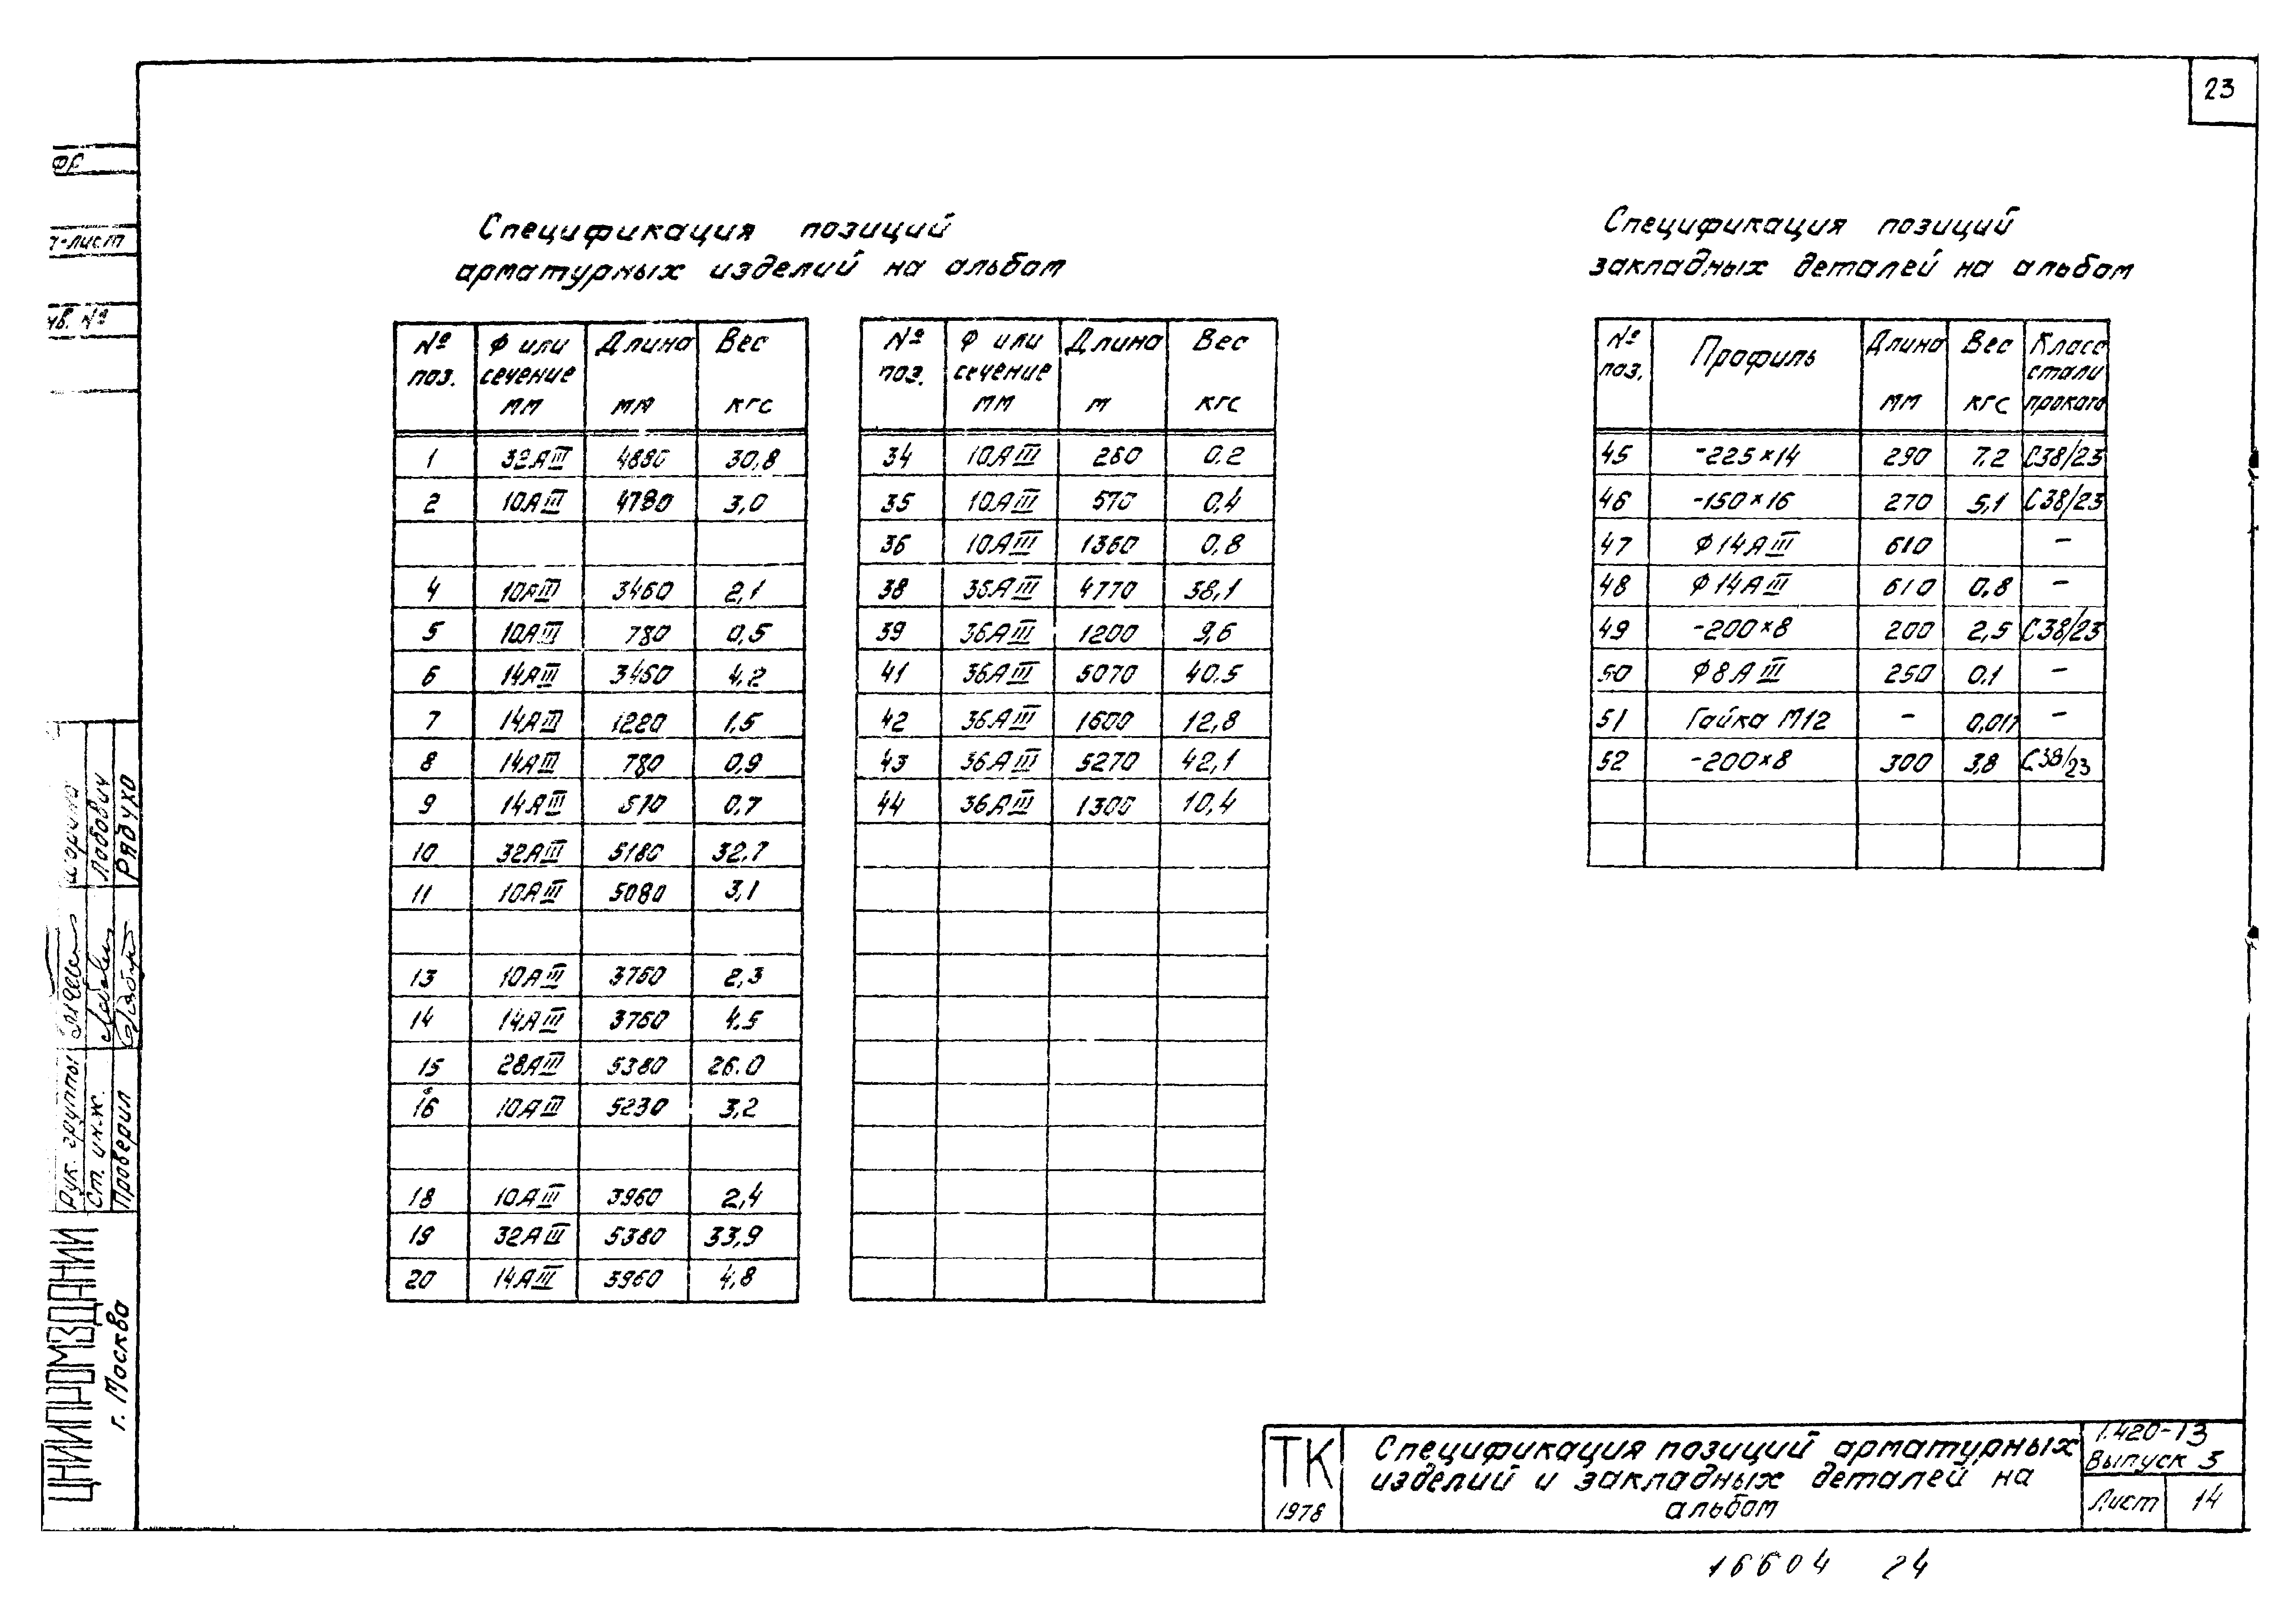 23
Спецификация позиций
арматурных изделий на альбом
№ поз. Ф или сечение мм Длина мм Вес кгс
1 32АIII 4880 30,8
2 10АIII 4780 3,0
4 10АIII 3460 2,1
5 10АIII 780 0,5
6 14АIII 3460 4,2
7 14АIII 1220 1,5
8 14АIII 780 0,9
9 14АIII 610 0,7
10 32АIII 5180 32,7
11 10АIII 5080 3,1
13 10АIII 3760 2,3
14 14АIII 3760 4.5
15 28АIII 5380 26.0
16 10АIII 5230 3,2
18 10АIII 3960 2,4
19 32АIII 5380 33,9
20 14АIII 3960 4,8
№ поз. Ф или сечение мм Длина м Вес кгс
34 10АIII 260 0.2
35 10АIII 570 0,4
36 10АIII 1360 0,8
38 36АIII 4770 38,1
39 36АIII 1200 9,6
41 36АIII 5070 40.5
42 36АIII 1600 12,8
43 36АIII 5270 42,1
44 36АIII 1300 10,4
Спецификация позиций
закладных деталей на альбом
№ поз. Профиль Длина мм Вес кгс Класс стали проката
45 -225×14 290 7.2 С38/23
46 -150×16 270 5,1 С38/23
47 Ф14АIII 610 –
48 Ф14АIII 610 0,8 –
49 -200×8 200 2,5 С38/23
50 Ф8АIII 250 0.1 –
51 Гайка М12 – 0,017 –
52 -200×8 300 3,8 С38/23
ТК
1978
Спецификация позиций арматурных
изделий и закладных деталей на
альбом
1.420-13
Выпуск 3
Лист 14
16604 24
ЦНИИПРОМЗДАНИЙ
г. Москва
Рук. группы
Ст. инж. Лабович
Проверил Рядухо